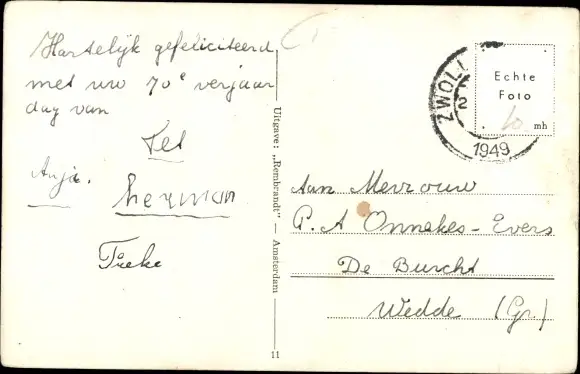 Hartelijk gefeliciteerd
met uw 70e verjaar
dag van
Tet
Anja.
herman
Tieke
Uitgave: „Rembrandt” — Amsterdam
11
ZWOLL
2
1949
Echte
Foto
10
mh
Aan Mevrouw
P. A Onnekes-Evers
De Burcht
Wedde (Gr.)